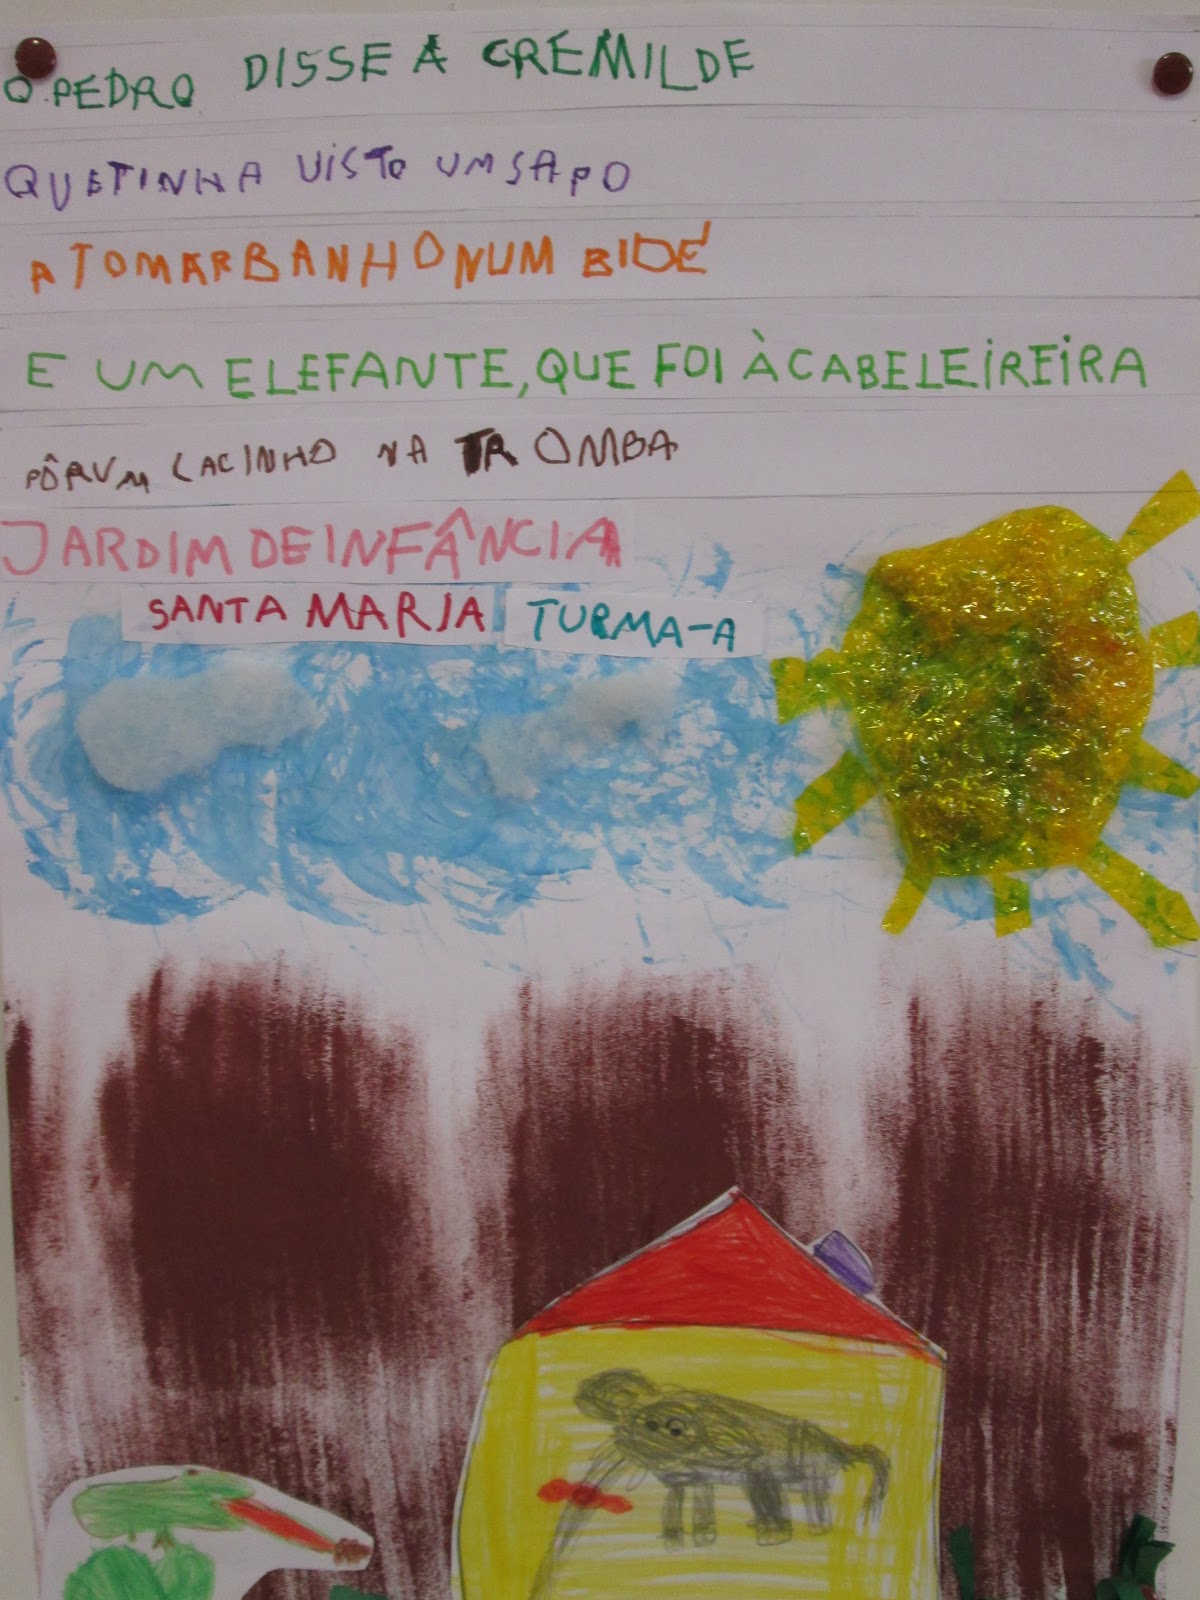 O PEDRO DISSE A CREMILDE
QUE TINHA VISTO UM SAPO
A TOMAR BANHO NUM BIDÉ
E UM ELEFANTE, QUE FOI À CABELEIREIRA
PÔR UM LACINHO NA TROMBA
JARDIM DE INFÂNCIA
SANTA MARIA TURMA-A